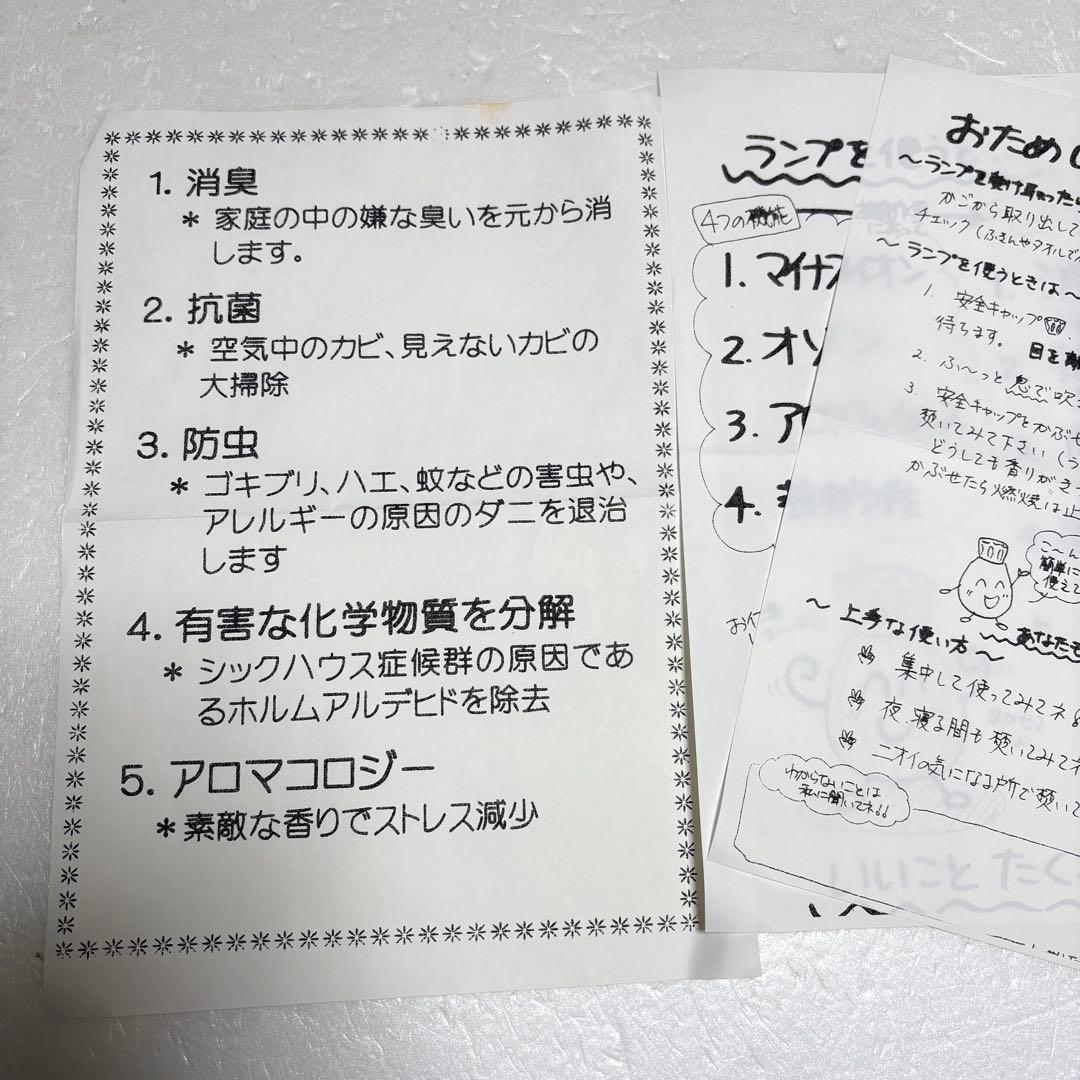 1. 消臭
* 家庭の中の嫌な臭いを元から消
します。
2. 抗菌
* 空気中のカビ、見えないカビの
大掃除
3. 防虫
* ゴキブリ、ハエ、蚊などの害虫や、
アレルギーの原因のダニを退治
します
4. 有害な化学物質を分解
* シックハウス症候群の原因であ
るホルムアルデヒドを除去
5. アロマコロジー
* 素敵な香りでストレス減少
ランプを
4つの機能
1. マイナ
2. オゾ
3. ア
4.
おため
〜ランプを受け取ったら
かごから取り出して
チェック(ふきんやタオルで
〜ランプを使うときは〜
1. 安全キャップ
待ちます。 目を離
2. ふ〜っと息で吹き
3. 安全キャップをかぶせ
焚いてみて下さい(
どうしても香りがきつ
かぶせたら燃焼は止
こ〜ん
簡単に
使えて
あなたも
〜上手な使い方〜
集中して使ってみてネ
夜、寝る間も焚いてみてネ
ニオイの気になる所で焚いて
わからないことは
私に聞いてネ!!
いいこと たく